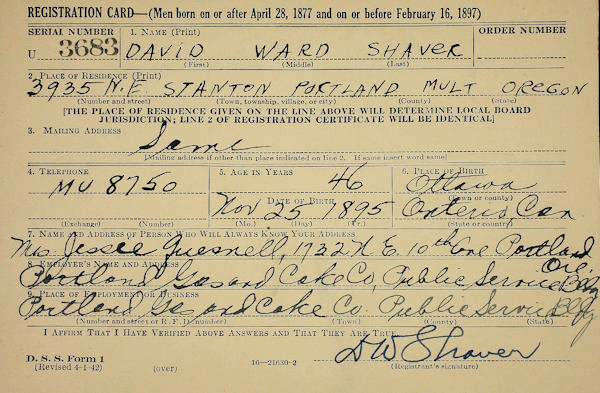 REGISTRATION CARD—(Men born on or after April 28, 1877 and on or before February 16, 1897)
SERIAL NUMBER 1. NAME (Print) ORDER NUMBER
U 3683 DAVID WARD SHAVER
(First) (Middle) (Last)
2. PLACE OF RESIDENCE (Print)
3935 N.E. STANTON PORTLAND MULT OREGON
(Number and street) (Town, township, village, or city) (County) (State)
[THE PLACE OF RESIDENCE GIVEN ON THE LINE ABOVE WILL DETERMINE LOCAL BOARD
JURISDICTION; LINE 2 OF REGISTRATION CERTIFICATE WILL BE IDENTICAL]
3. MAILING ADDRESS
Same
[Mailing address if other than place indicated on line 2. If same insert word same]
4. TELEPHONE 5. AGE IN YEARS 6. PLACE OF BIRTH
MU 8750 46 Ottawa
DATE OF BIRTH (Town or county)
Nov 25 1895 Onterio, Can
(Exchange) (Number) (Mo.) (Day) (Yr.) (State or country)
7. NAME AND ADDRESS OF PERSON WHO WILL ALWAYS KNOW YOUR ADDRESS
Mrs. Jessie Quesnell, 1732 N.E. 10th Ave Portland
Ore.
8. EMPLOYER'S NAME AND ADDRESS
Portland Gas and Coke Co, Public Service Bldg
9. PLACE OF EMPLOYMENT OR BUSINESS
Portland Gas and Coke Co. Public Service Bldg
(Number and street or R. F. D. number) (Town) (County) (State)
I AFFIRM THAT I HAVE VERIFIED ABOVE ANSWERS AND THAT THEY ARE TRUE.
DW Shaver
D. S. S. Form 1
(Revised 4-1-42) (over) 16—21630-2 (Registrant's signature)